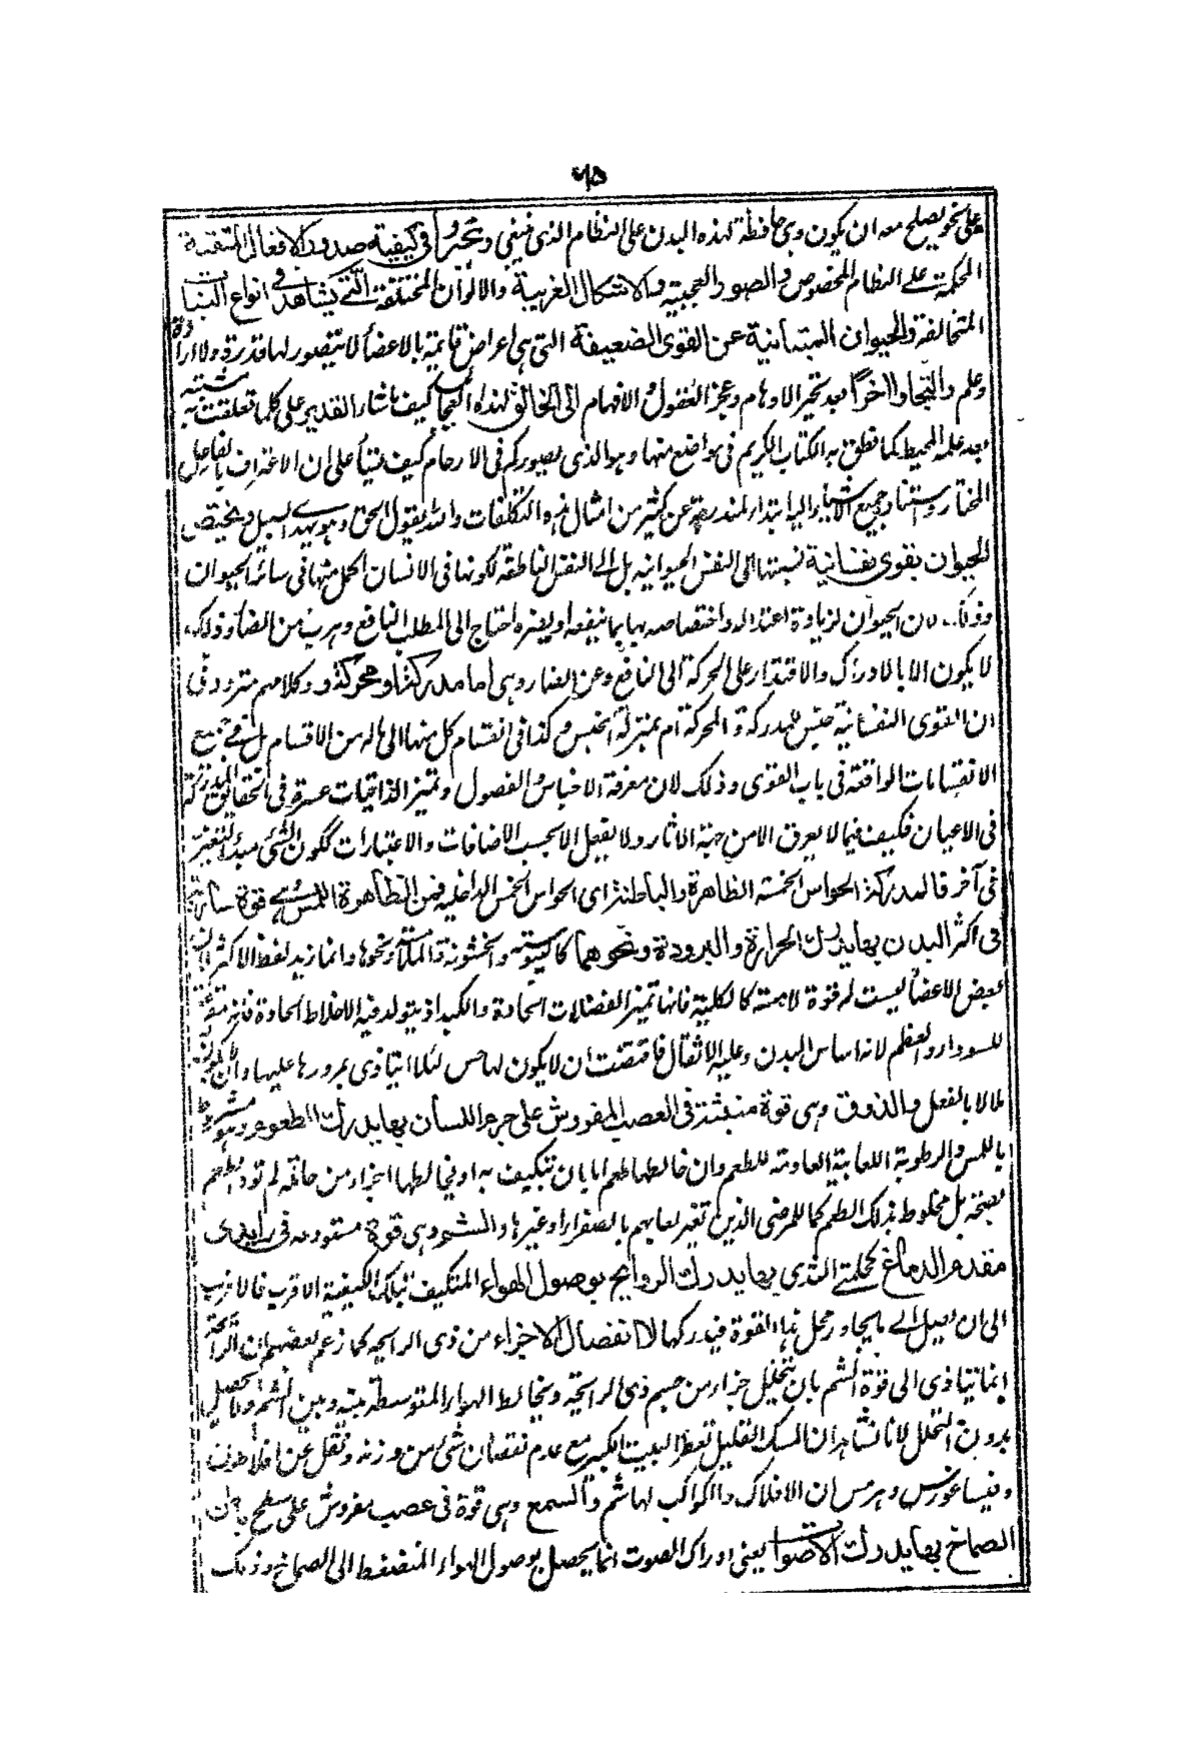 ٦٥
على نحو يصلح معه ان يكون وى حافظة لهذه البدن على النظام الذى ينبغى وتحيروا فى كيفية صدور الافعال المتقنة
المحكمة على النظام المخصوص والصور العجيبة والاشكال الغريبة والالوان المختلفة التى يشاهد فى انواع النبات
المتخالفة والحيوان المتباينة عن القوى الضعيفة التى هى اعراض قائمة بالاعضا لا يتصور لها قدرة ولا ارادة
وعلم والتجاوا اخرا بعد تحير الاوهام وعجز العقول والافهام الى الخالق لهذه العجايب كيف ماشاء القدير على كلما تعلقت به مشيته
بعد علمه المحيط كما نطق به الكتاب الكريم فى مواضع منها وهو الذى يصوركم فى الارحام كيف يشأ على ان الاعتراف بالفاعل
المختار واستناد جميع الاشياء اليه ابتداء لمندوحة عن كثير من امثال هذه التكلفات والله يقول الحق وهو يهدى السبيل ويختص
الحيوان بقوى نفسانية نسبتها الى النفس الحيوانية بل الى النفس الناطقة لكونها فى الانسان اكمل منها فى سائر الحيوان
وذلك لان الحيوان لزيادة اعتداله واختصاصه بها بما ينفعه او يضره احتاج الى المطلب النافع وهرب من الضار وذلك
لا يكون الا بالادراك والاقتدار على الحركة الى النافع وعن الضار وهى اما مدركة او محركة وكلامهم متردد فى
ان القوى النفسانية جنس للمدركة والمحركة ام بمنزلة الجنس وكذا فى انقسام كل منها الى ماله من الاقسام بل فى جميع
الانقسامات الواقعة فى باب القوى وذلك لان معرفة الاجناس والفصول وتميز الذاتيات عسرة فى الحقائق المدركة
فى الاعيان فكيف فيما لا يعرف الا من جهة الاثار ولا يعقل الا بحسب الاضافات والاعتبارات ككون الشئ مبدأ لتغير
فى آخر فالمدركة الحواس الخمسة الظاهرة والباطنة اى الحواس الخمس الداخلة فمن الظاهرة اللمس وهى قوة سارية
فى اكثر البدن بها يدرك الحرارة والبرودة ونحوهما كاليبوسة والخشونة والملاسة ونحوها وانما زيد لفظ الاكثر لان
بعض الاعضا ليست له قوة لامسة كالكلية فانها تميز الفضلات الحادة والكبد اذ يتولد فيه الاخلاط الحادة
للسوداء والعظم لانه اساس البدن وعليه الاثقال فاقتضت ان لا يكون لها حس لئلا يتاذى بمرورها عليها
بالفعل والذوق وهى قوة منبثة فى العصب المفروش على جرم اللسان بها يدرك الطعوم وهو مشروط
باللمس والرطوبة اللعابية العادمة للطعم وان خالطها طعم اما بان تتكيف به او يخالطها اجزاء من حامله لم تود الطعم
بصحة بل مخلوط بذلك الطعم كما للمرضى الذين تغير لعابهم بالصفراء وغيرها والشم وهى قوة مستودعة فى زايدتى
مقدم الدماغ كحلمتى الثدى بها يدرك الروايح بوصول الهواء المتكيف بتلك الكيفية الاقرب فالاقرب
الى ان يصل الى ما يجاور محل هذه القوة فيدركها لا انفصال الاجزاء من ذى الرايحة كما زعم بعضهم ان الرائحة
انما يتاذى الى قوة الشم بان يتحلل اجزاء من جسم ذى الرايحة ويخالط الهواء المتوسطة بينه وبين الشم ولا يحصل
بدون التحلل لانا نشاهد ان المسك القليل تعطر البيت الكبير مع عدم نقصان شئ من وزنه ونقل عن افلاطون
وفيثاغورس وهرمس ان الافلاك والكواكب لها شم والسمع وهى قوة فى عصب مفروش على سطح باطن
الصماخ بها يدرك الاصوات يعنى ادراك الصوت انما يحصل بوصول الهواء المنضغط الى الصماخ وذلك